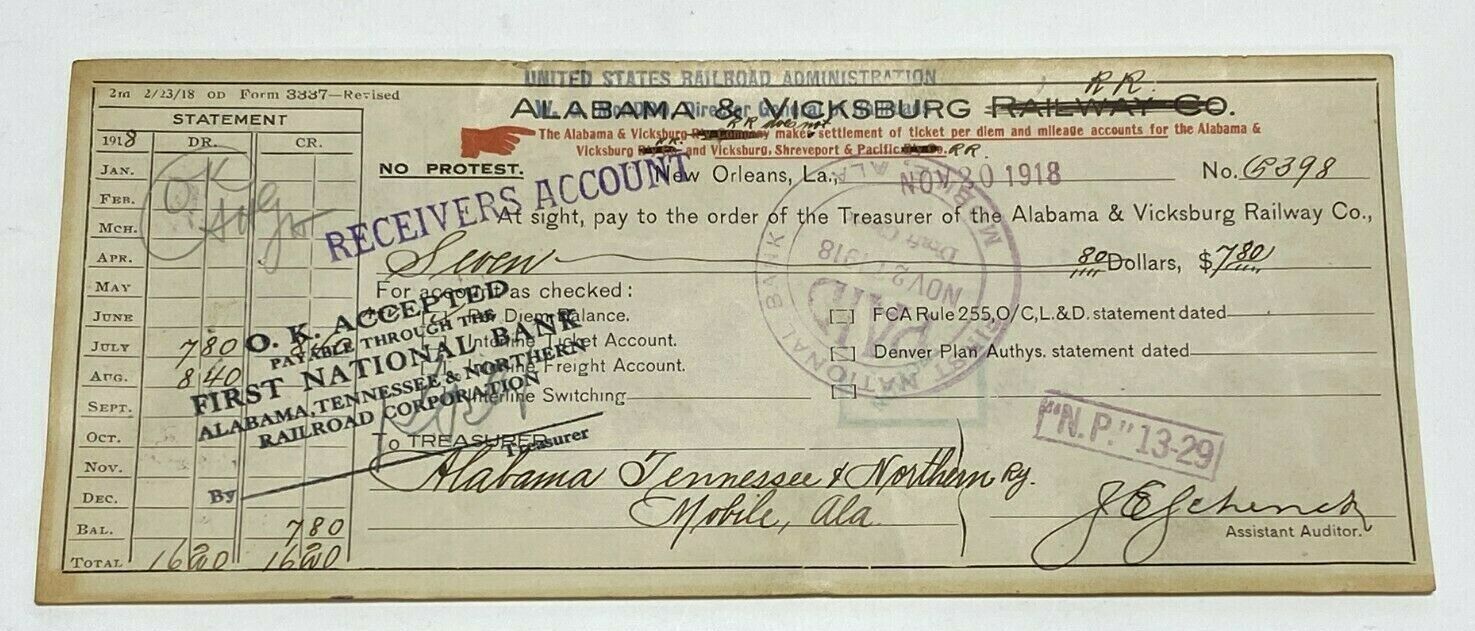 2m 2/23/18 OD Form 3337—Revised
UNITED STATES RAILROAD ADMINISTRATION
Director General
R R.
ALABAMA & VICKSBURG RAILWAY CO.
The Alabama & Vicksburg Ry. Company makes settlement of ticket per diem and mileage accounts for the Alabama &
RR does not
Vicksburg and Vicksburg, Shreveport & Pacific Co. RR.
RR.
STATEMENT
1918 DR. CR.
JAN.
FEB.
MCH.
APR.
MAY
JUNE
JULY 780 840
AUG. 840
SEPT.
OCT.
NOV.
DEC.
BAL. 780
TOTAL 1620 1620
OK
NO PROTEST.
New Orleans, La., NOV 20 1918 No. 6398
RECEIVERS ACCOUNT
At sight, pay to the order of the Treasurer of the Alabama & Vicksburg Railway Co.,
Seven 80 Dollars, $7.80
For account as checked:
Per Diem Balance.
Interline Ticket Account.
Interline Freight Account.
Interline Switching
FCA Rule 255, O/C, L.& D. statement dated
Denver Plan Authys. statement dated
O. K. ACCEPTED
PAYABLE THROUGH THE
FIRST NATIONAL BANK
ALABAMA, TENNESSEE & NORTHERN
RAILROAD CORPORATION
Treasurer
By
FIRST NATIONAL BANK
MOBILE, ALA.
PAID
NOV 2 1918
"N.P." 13-29
To TREASURER
Alabama Tennessee & Northern Ry.
Mobile, Ala.
J E Schenck
Assistant Auditor.